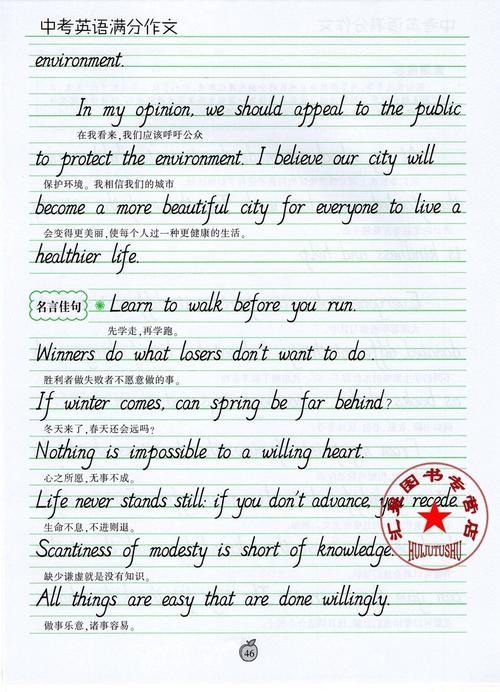 中考英语满分作文
environment.
In my opinion, we should appeal to the public
在我看来,我们应该呼吁公众
to protect the environment. I believe our city will
保护环境。我相信我们的城市
become a more beautiful city for everyone to live a
会变得更美丽,使每个人过一种更健康的生活。
healthier life.
名言佳句 Learn to walk before you run.
先学走,再学跑。
Winners do what losers don't want to do.
胜利者做失败者不愿意做的事。
If winter comes, can spring be far behind?
冬天来了,春天还会远吗?
Nothing is impossible to a willing heart.
心之所愿,无事不成。
Life never stands still: if you don't advance, you recede.
生命不息,不进则退。
Scantiness of modesty is short of knowledge.
缺少谦虚就是没有知识。
All things are easy that are done willingly.
做事乐意,诸事容易。
46
汇聚图书专营店
HUIJUTUSHU